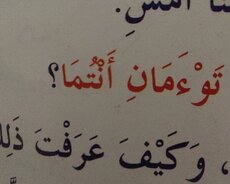 أَمْسِ.
تَوْءَمَانِ أَنْتُمَا؟
، وَكَيْفَ عَرَفْتَ ذَلِكَ